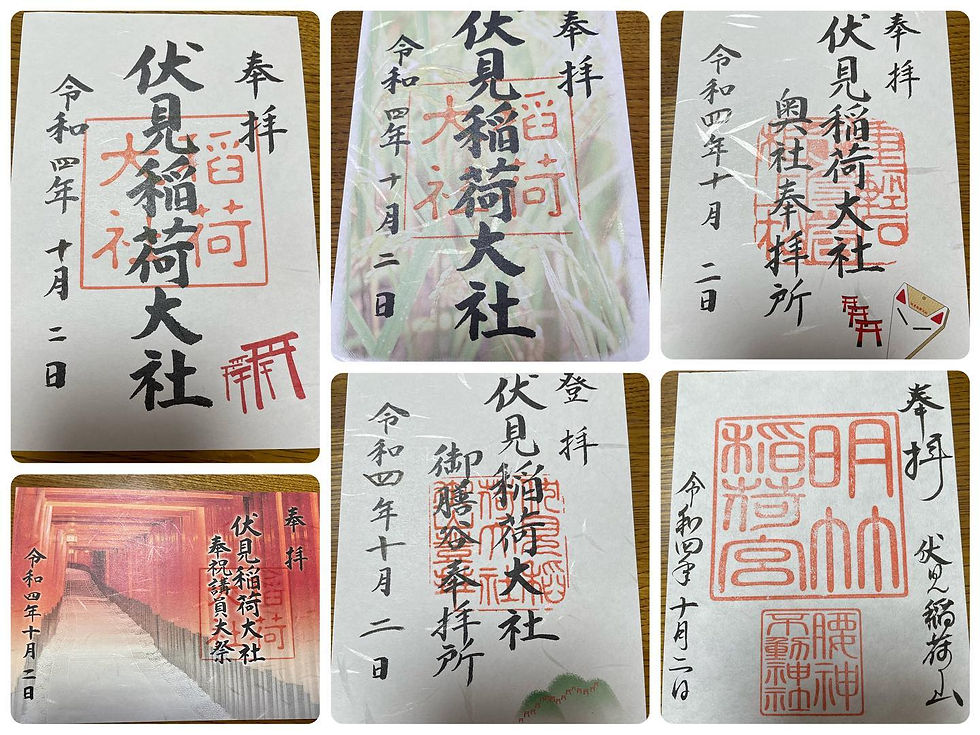 奉拝
伏見稲荷大社
稲荷
大社
令和四年十月二日
奉拝
伏見稲荷大社
稲荷
大社
令和四年十月二日
奉拝
伏見稲荷大社
奥社奉拝所
令和四年十月二日
奉拝
伏見稲荷大社
奉祝講員大祭
令和四年十月二日
登拝
伏見稲荷大社
御膳谷奉拝所
令和四年十月二日
奉拝
伏見稲荷山
明竹
稲荷宮
腰神
不動神社
令和四年十月二日